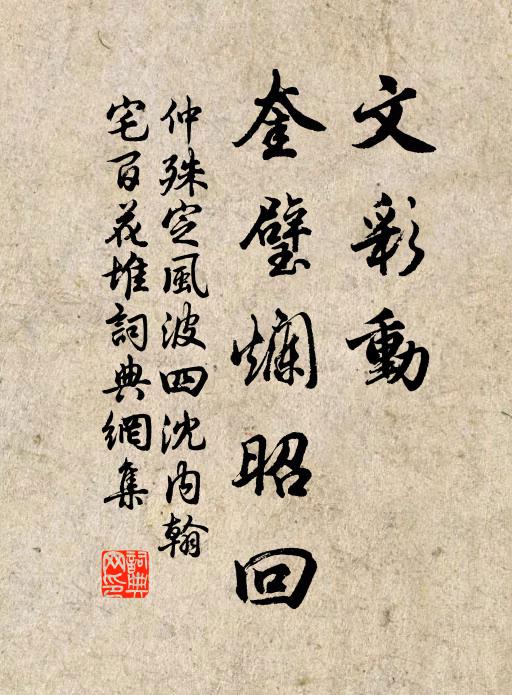 文彩動
奎璧爛昭回
仲殊定風波四沈內翰
宅百花堆詞典網集
詞典網印